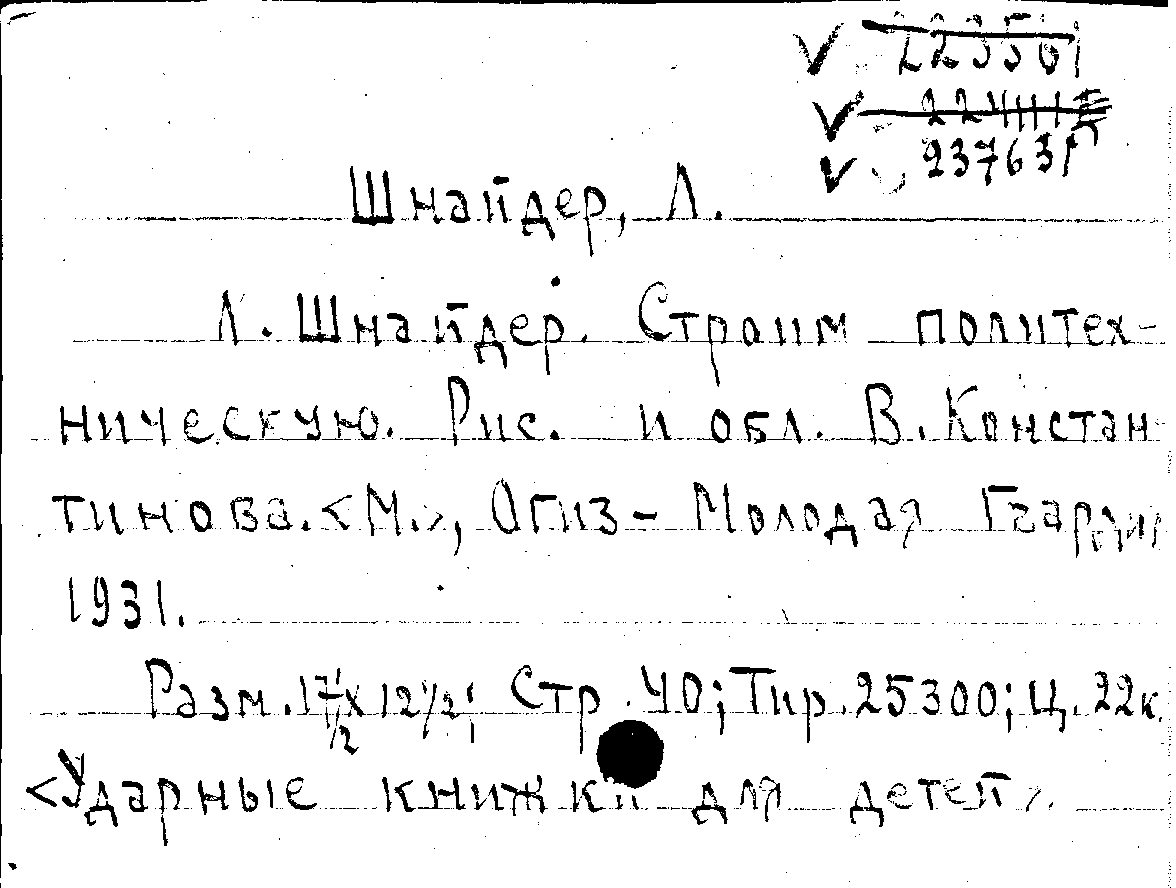 223501
237631
Шнайдер, Л.
Л. Шнайдер. Строим политех-
ническую. Рис. и обл. В. Констан-
тинова. <М.>, Огиз - Молодая Гвардия
1931.
Разм. 17 1/2 x 12 1/2; Стр. 40; Тир. 25300; Ц. 22к.
<Ударные книжки для детей>.